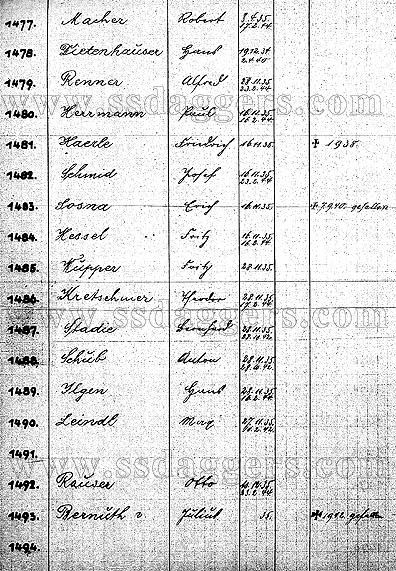 1477. Macher Robert 8.4.35. 17.2.44
1478. Dietenhauser Hans 19.12.34 2.4.40
1479. Renner Alfred 28.11.35 23.2.44
www.ssdaggers.com
1480. Herrmann Paul 16.11.35. 16.2.44.
1481. Haerle Friedrich 16.11.35. 1938.
1482. Schmid Josef 16.11.35 23.2.44
1483. Sosna Erich 16.11.35. gefallen
1484. Hessel Fritz 16.2.44
1485. Küpper Fritz 28.11.35.
1486. Kretschmer Theodor 28.11.35 17.2.44
www.ssdaggers.com
1487. Stadie Bernhard 28.11.35
1488. Schub Anton 28.11.35
1489. Ilgen Hans 28.11.35 16.2.44
1490. Leindl Max 27.11.35
1491.
www.ssdaggers.com
1492. Rauser Otto 23.2.44
1493. Bernuth v. Julius 35. 1942 gefallen
1494.